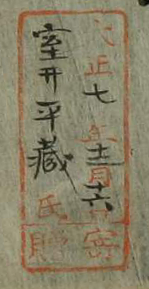 大正七年十二月十六日
室井平藏氏寄贈